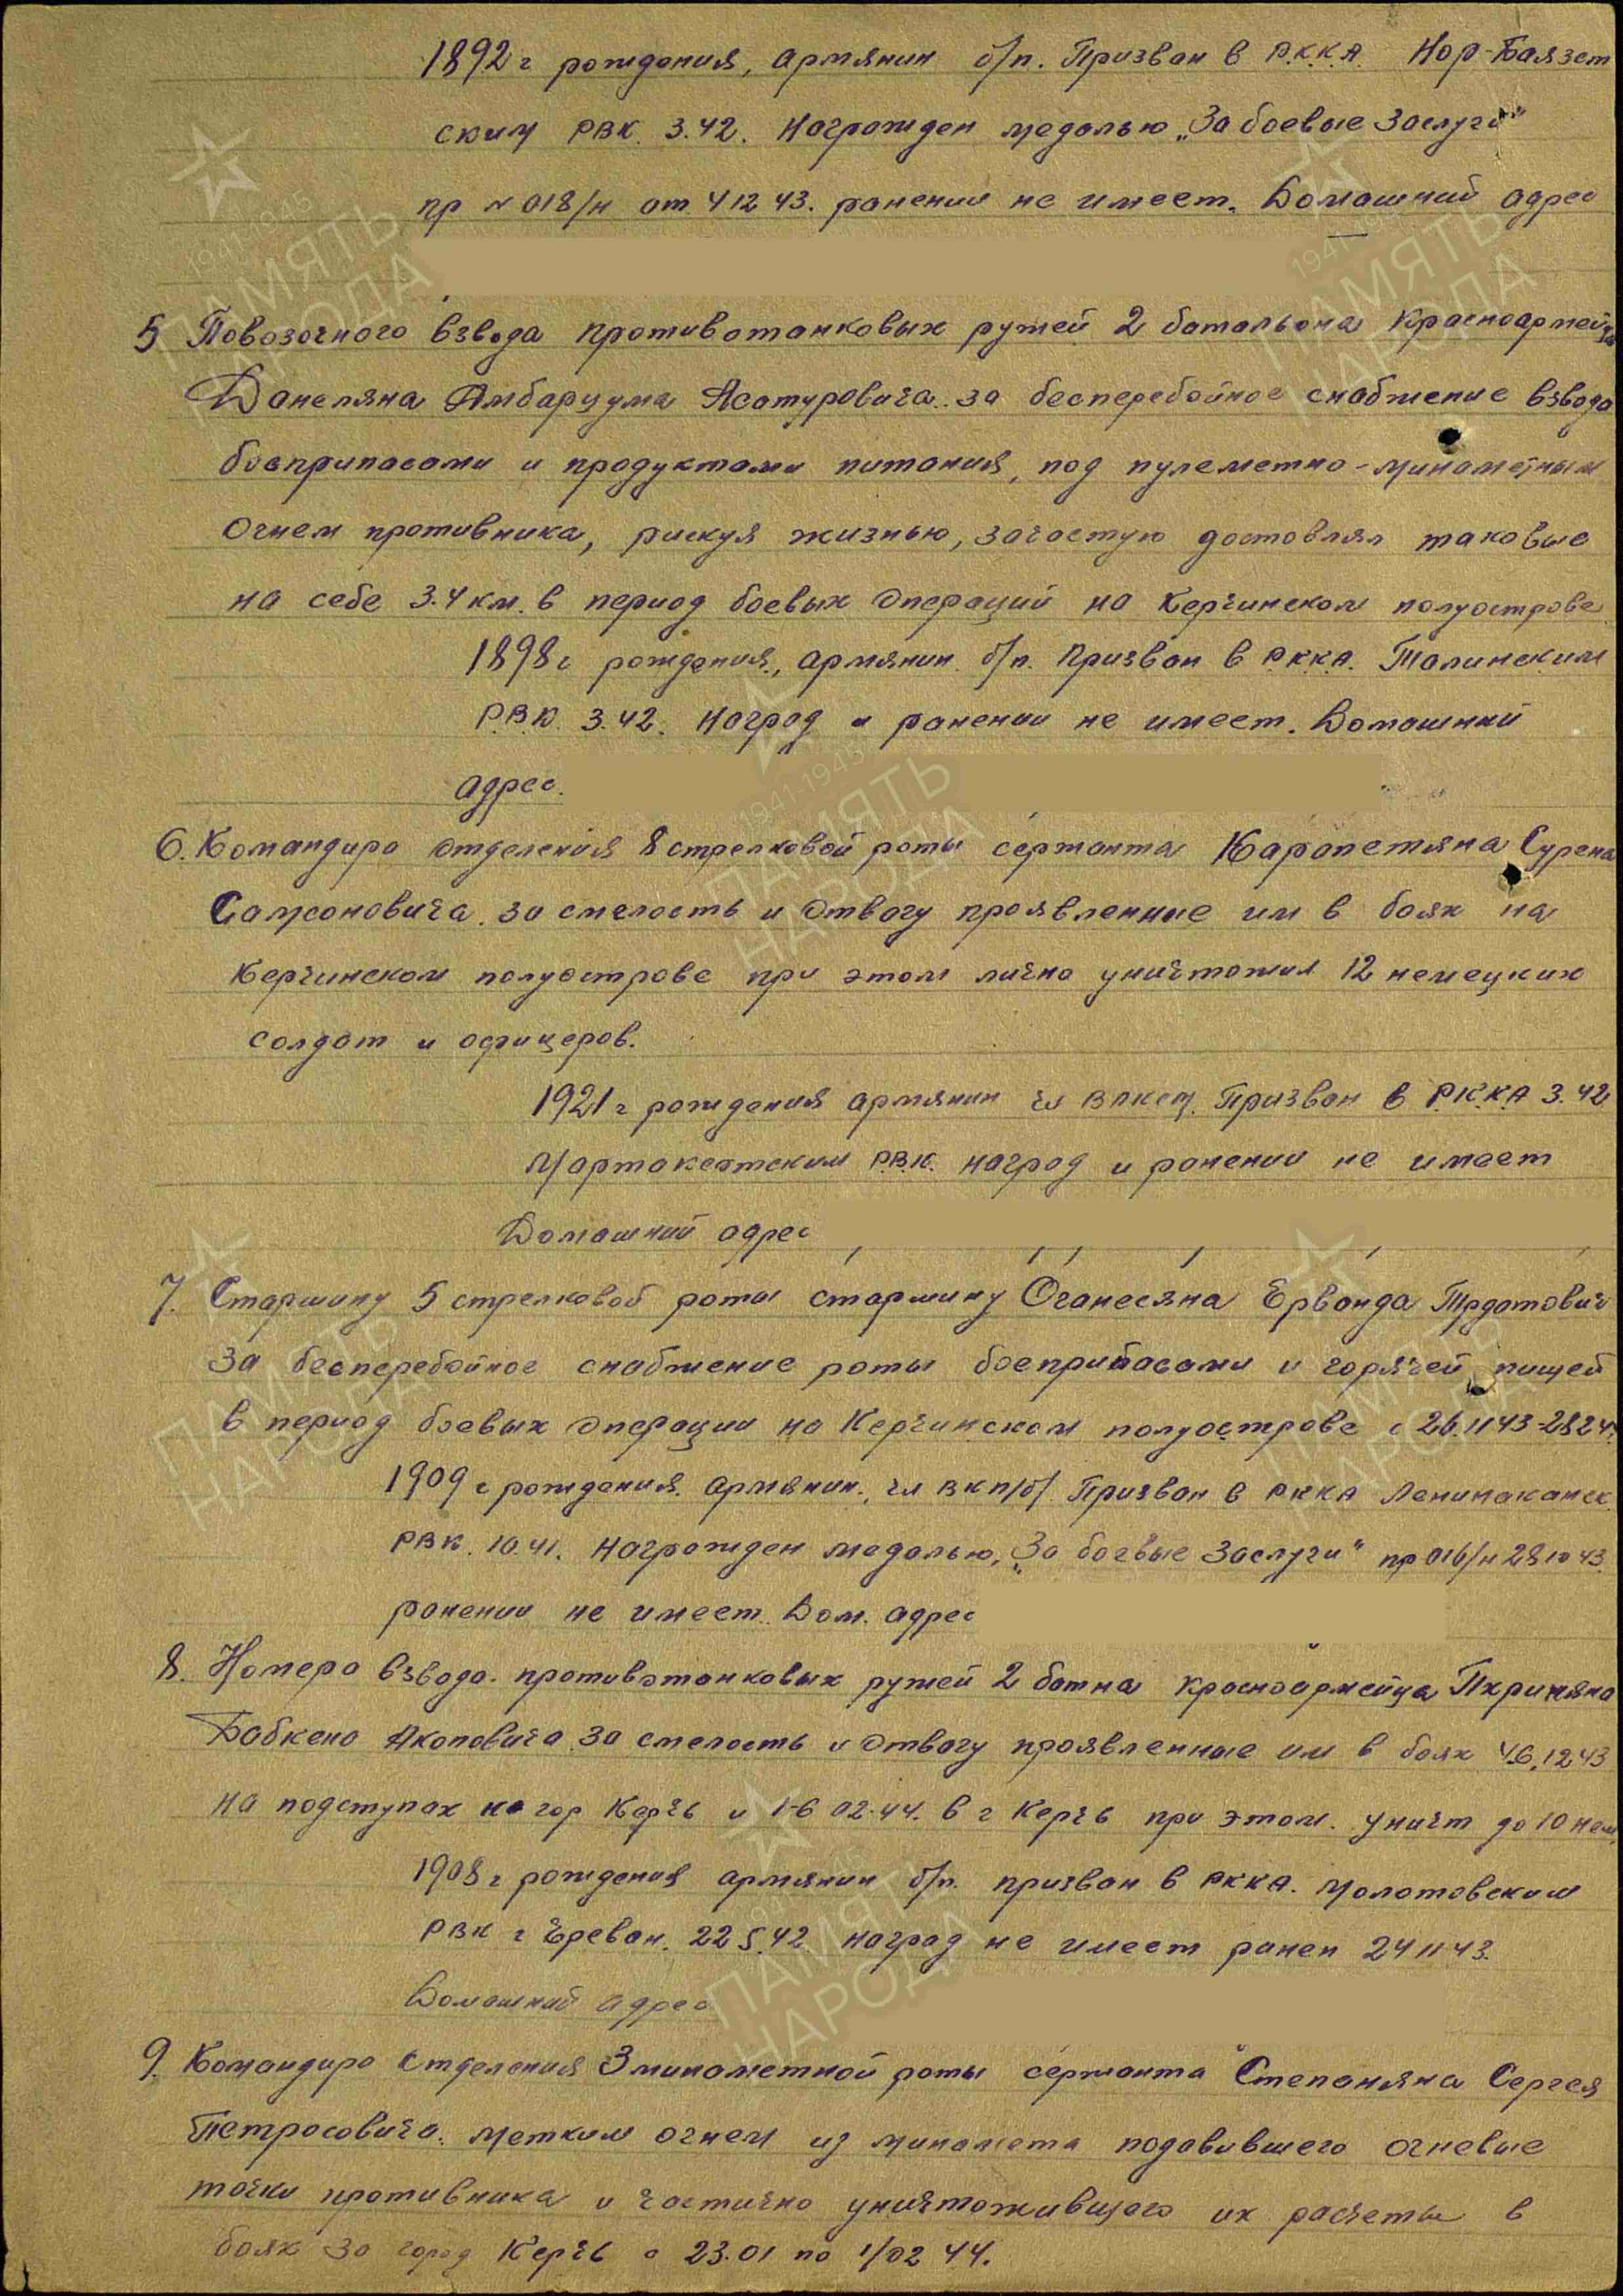 1892 г рождения, армянин б/п. Призван в Р.К.К.А. Нор-Баязет
ским РВК 3.42. Награжден медалью „За боевые заслуги“
пр № 018/н от 4 12 43. ранении не имеет. Домашний адрес
5 Повозочного взвода противотанковых ружей 2 батальона Красноармейца
Данеляна Амбарцума Асатуровича. за бесперебойное снабжение взвода
боеприпасами и продуктами питания, под пулеметно-минометным
огнем противника, рискуя жизнью, зачастую доставлял таковые
на себе 3.4 км. в период боевых операций на Керчинском полуострове
1898 г рождения, армянин б/п. Призван в РККА. Талинским
Р.В.К. 3.42. Наград и ранении не имеет. Домашний
адрес.
6. Командира отделения 8 стрелковой роты сержанта Карапетяна Сурена
Самсоновича. за смелость и отвагу проявленные им в боях на
Керчинском полуострове при этом лично уничтожил 12 немецких
солдат и офицеров.
1921 г рождения армянин чл ВЛКСМ. Призван в Р.К.К.А 3.42
Мартакертским Р.В.К. наград и ранении не имеет
Домашний адрес
7. Старшину 5 стрелковой роты старшину Оганесяна Ерванда Трдатович
За бесперебойное снабжение роты боеприпасами и горячей пищей
в период боевых операции на Керчинском полуострове с 26.11 43-2 8 24.
1909 г рождения. армянин., чл ВКП/б/ Призван в РККА Ленинаканск
РВК. 10.41. Награжден медалью, „За боевые заслуги“ пр 016/н 28 10 43.
ранении не имеет. Дом. адрес
8. Номера взвода. противотанковых ружей 2 батна красноармейца
Бабкена Акоповича. За смелость и отвагу проявленные им в боях 4.6.12 43
на подступах на гор Керчь и 1-6 02.44. в г Керчь при этом. уничт до 10 нем
1908 г рождения армянин б/п. призван в РККА. Молотовским
РВК г Ереван. 22 5.42 наград не имеет ранен 24 11 43.
Домашний адрес
9. Командира отделения 3 минометной роты сержанта Степаняна Сергея
Петросовича. метким огнем из миномета подавившего огневые
точки противника и частично уничтожившего их расчеты в
боях за город Керчь с 23.01 по 1/02 44.
1941-1945
ПАМЯТЬ
НАРОДА